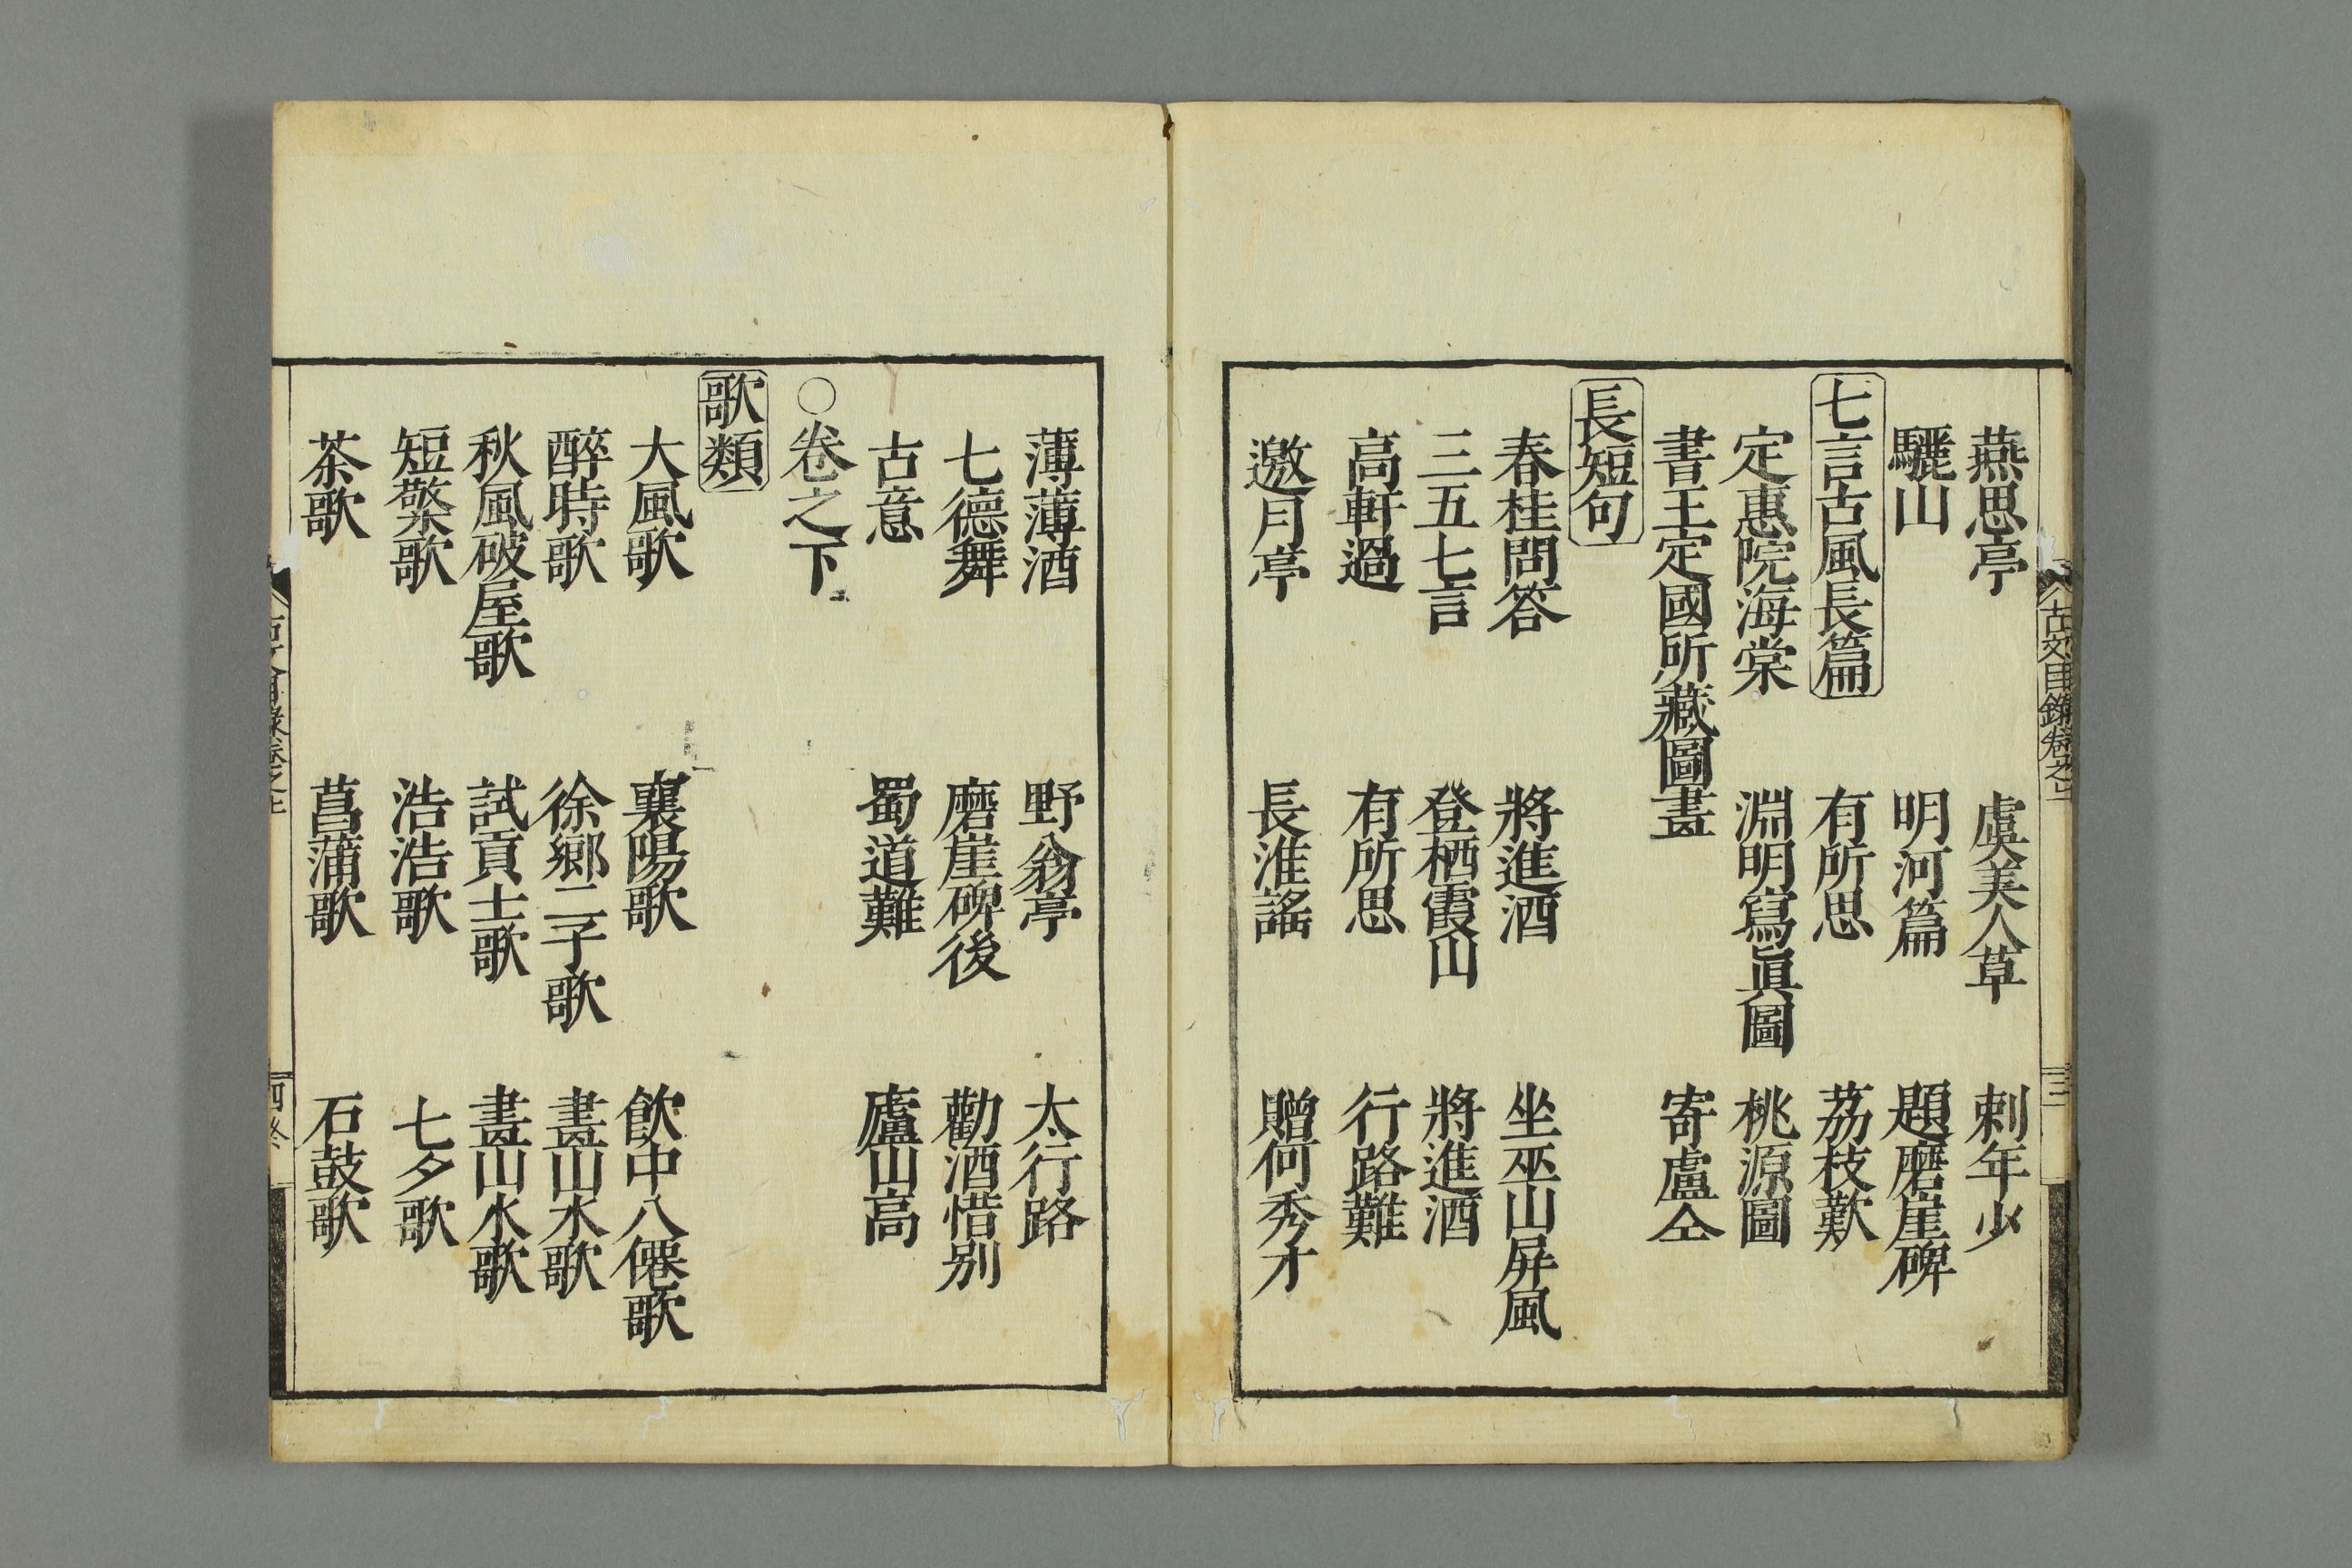 燕思亭 虞美人草 刺年少
驪山 明河篇 題磨崖碑
七言古風長篇 有所思 荔枝歎
定惠院海棠 淵明寫眞圖 桃源圖
書王定國所藏圖畫 寄盧仝
長短句
春桂問答 將進酒 坐巫山屏風
三五七言 登栖霞山 將進酒
高軒過 有所思 行路難
邀月亭 長淮謠 贈何秀才
古文目錄卷之上 三
薄薄酒 野翁亭 太行路
七德舞 磨崖碑後 勸酒惜别
古意 蜀道難 廬山高
○卷之下
歌類
大風歌 襄陽歌 飲中八僊歌
醉時歌 徐鄉二子歌 畫山水歌
秋風破屋歌 試貢士歌 畫山水歌
短檠歌 浩浩歌 七夕歌
茶歌 菖蒲歌 石鼓歌
四終